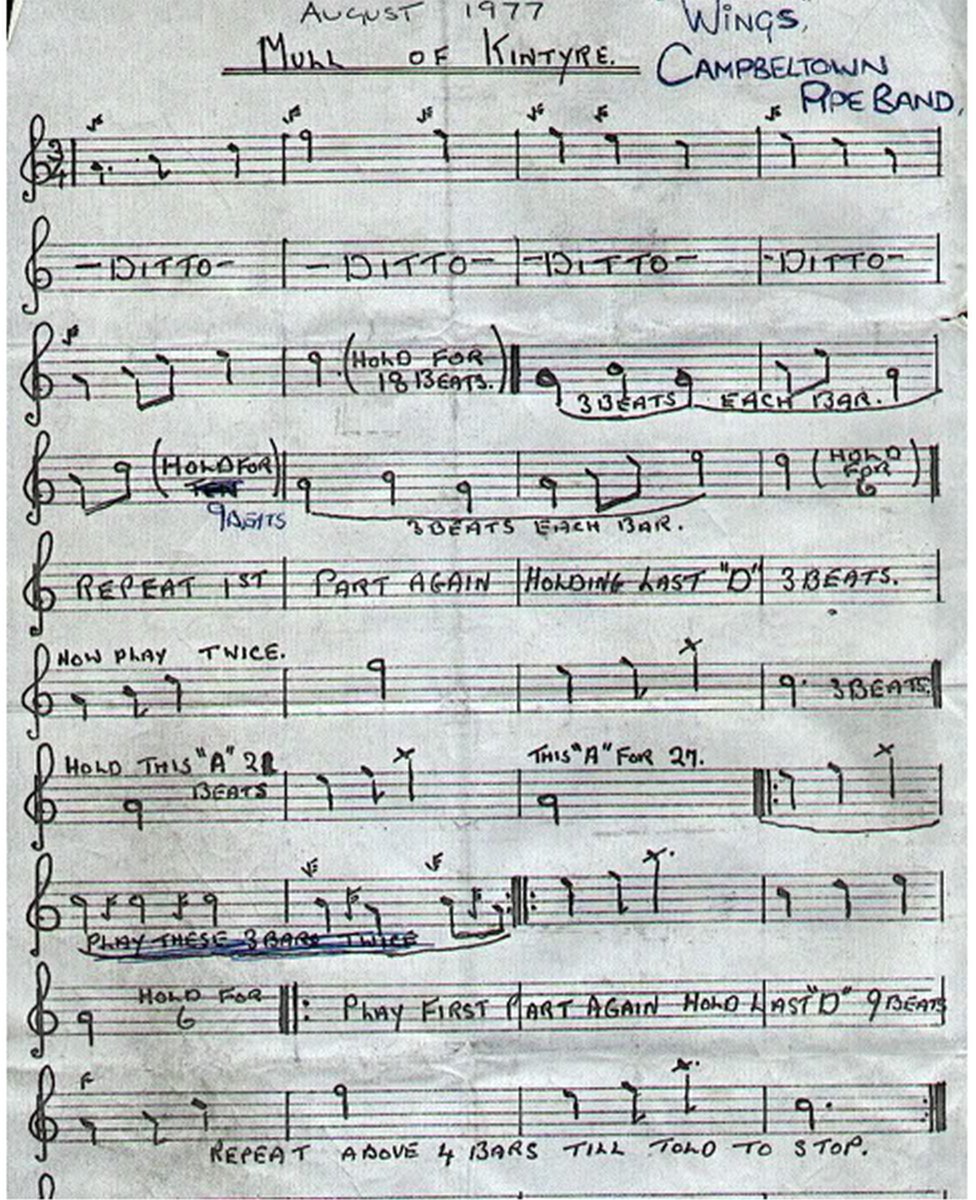 AUGUST 1977
MULL OF KINTYRE.
WINGS,
CAMPBELTOWN
PIPE BAND,
3
4
-DITTO- -DITTO- -DITTO- -DITTO-
(HOLD FOR
18 BEATS.)
3 BEATS EACH BAR.
(HOLD FOR)
9 BEATS
3 BEATS EACH BAR.
(HOLD
FOR
6)
REPEAT 1ST PART AGAIN HOLDING LAST "D" 3 BEATS.
NOW PLAY TWICE.
3 BEATS.
HOLD THIS "A"
BEATS
THIS "A" FOR 27.
PLAY THESE 3 BARS TWICE
HOLD FOR
6
PLAY FIRST PART AGAIN HOLD LAST "D" 9 BEATS
REPEAT ABOVE 4 BARS TILL TOLD TO STOP.